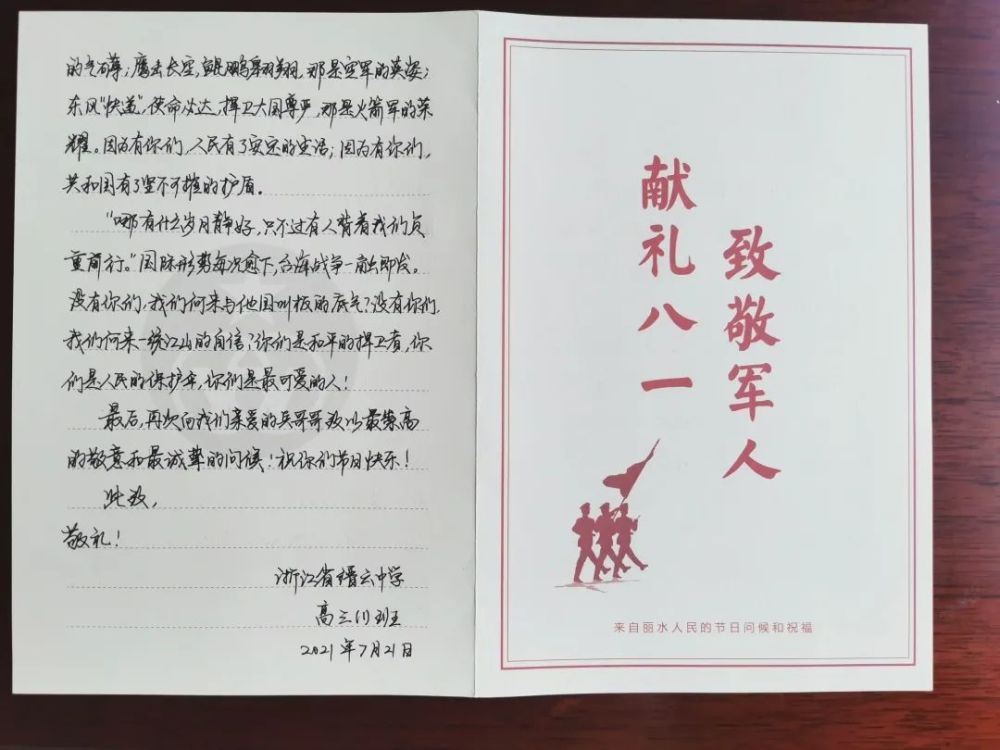 的气魄；鹰击长空，鲲鹏翱翔，那是空军的英姿；
东风“快递”，使命必达，捍卫大国尊严，那是火箭军的荣
耀。因为有你们，人民有了安定的生活；因为有你们，
共和国有了坚不可摧的护盾。
“哪有什么岁月静好，只不过有人替着我们负
重前行。”国际形势每况愈下，台海战争一触即发。
没有你们，我们何来与他国叫板的底气？没有你们，
我们何来一统江山的自信？你们是和平的捍卫者，你
们是人民的保护伞，你们是最可爱的人！
最后，再次向我们亲爱的兵哥哥致以最崇高
的敬意和最诚挚的问候！祝你们节日快乐！
此致，
敬礼！
浙江省缙云中学
高三(1)班
2021年7月21日
致敬军人
献礼八一
来自丽水人民的节日问候和祝福